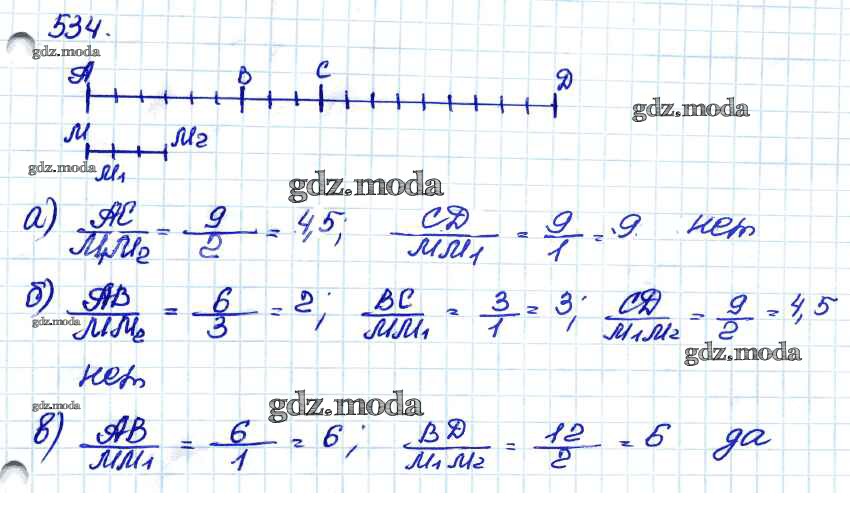 534.
gdz.moda
A B C D
gdz.moda
M M2
gdz.moda M1
gdz.moda
а) AC/M1M2 = 9/2 = 4,5; CD/MM1 = 9/1 = 9. нет
б) AB/MM2 = 6/3 = 2; BC/MM1 = 3/1 = 3; CD/M1M2 = 9/2 = 4,5
gdz.moda
gdz.moda
нет
gdz.moda gdz.moda
в) AB/MM1 = 6/1 = 6; BD/M1M2 = 12/2 = 6 да